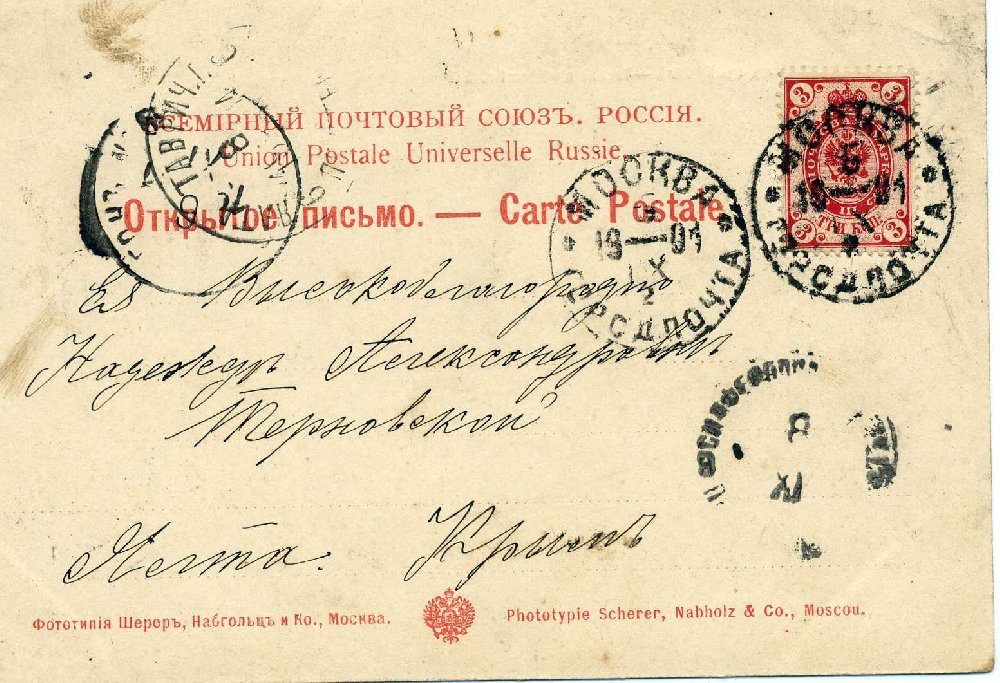 ВСЕМІРНЫЙ ПОЧТОВЫЙ СОЮЗЪ. РОССІЯ.
Union Postale Universelle Russie.
Открытое письмо. — Carte Postale.
3 3
3 ТРИ КОП. 3
МОСКВА
5
19—01
IX
2
ГОРОД. ПОЧТА
МОСКВА
19—01
IX
2
ГОРОД. ПОЧТА
Ея Высокоблагородію
Надеждѣ Александровнѣ
Терновской
Ялта. Крымъ
8
IX
Фототипія Шереръ, Набгольцъ и Ко., Москва.
Phototypie Scherer, Nabholz & Co., Moscou.